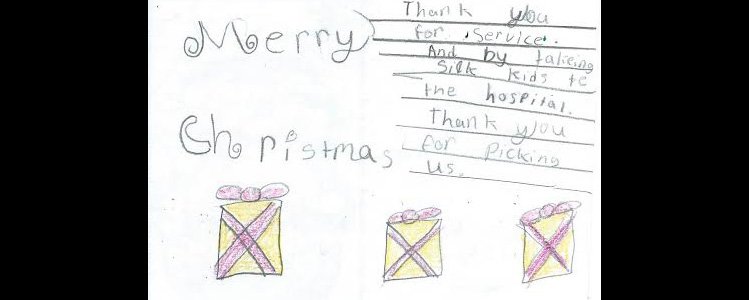 Merry
Christmas
Thank you
for service.
And by takeing
Silk kids te
the hospital.
Thank you
for Picking
us.